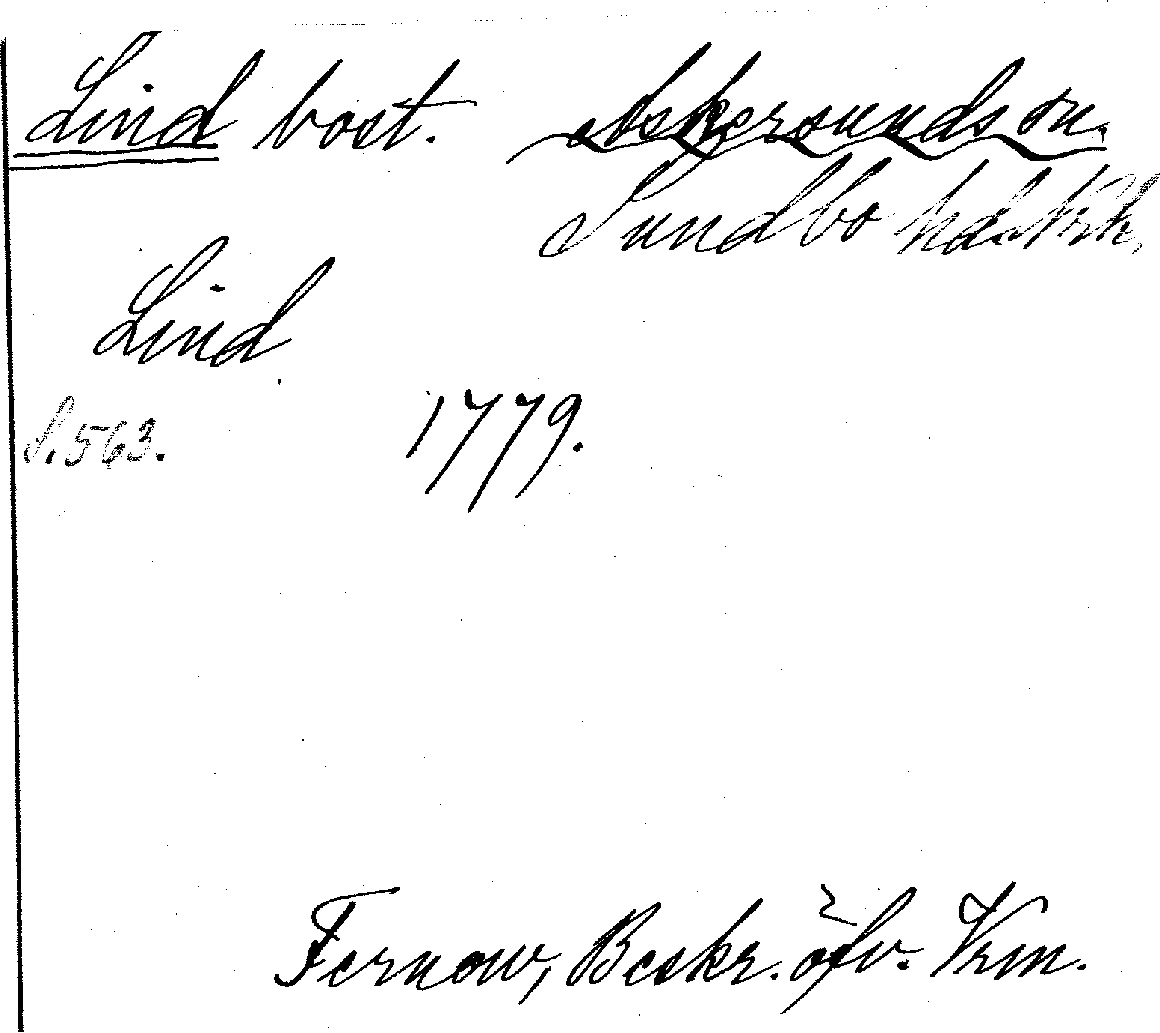 Lind bost. Askersunds sn.
Sundbo hd. Nrk.
Lind
S. 563. 1779.
Fernow, Beskr. öfv. Vrm.